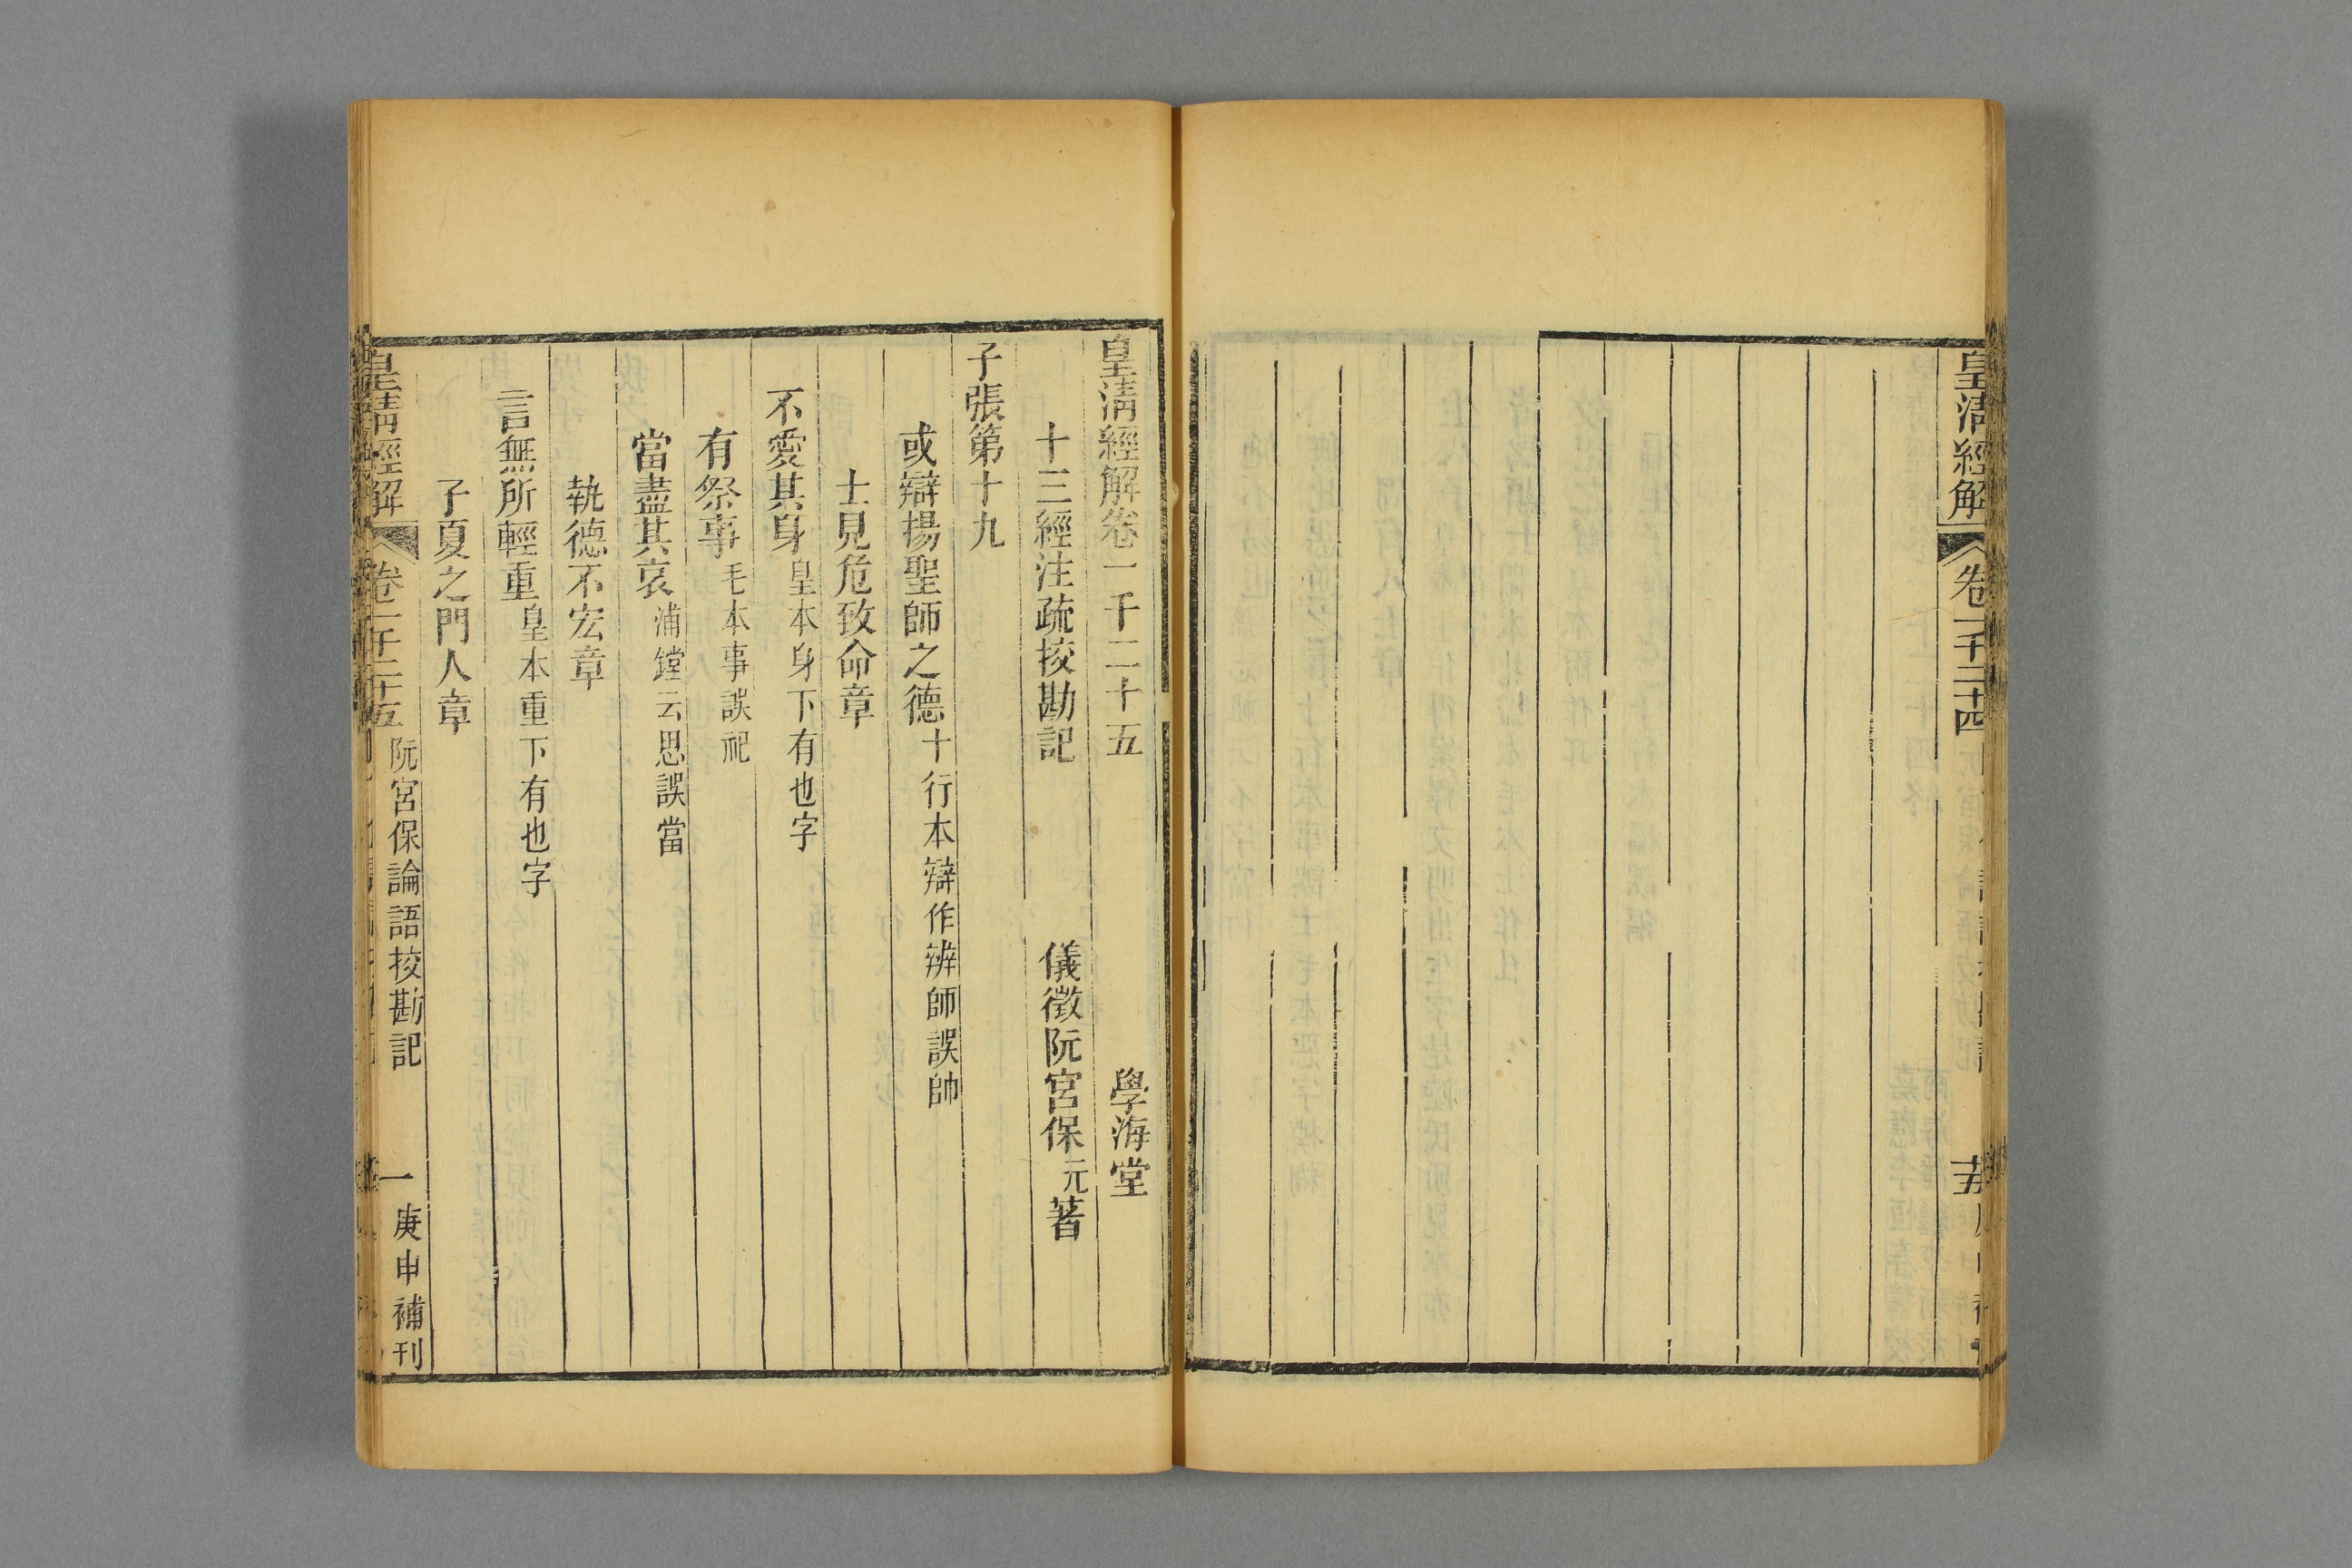 皇清經解
卷一千二十四
皇清經解卷一千二十五 學海堂
十三經注疏挍勘記 儀徵阮宮保元著
子張第十九
或辯揚聖師之德十行本辯作辨師誤帥
士見危致命章
不愛其身皇本身下有也字
有祭事毛本事誤祀
當盡其哀浦鏜云思誤當
執德不宏章
言無所輕重皇本重下有也字
子夏之門人章
皇清經解
卷一千二十五
阮宮保論語挍勘記
一
庚申補刊